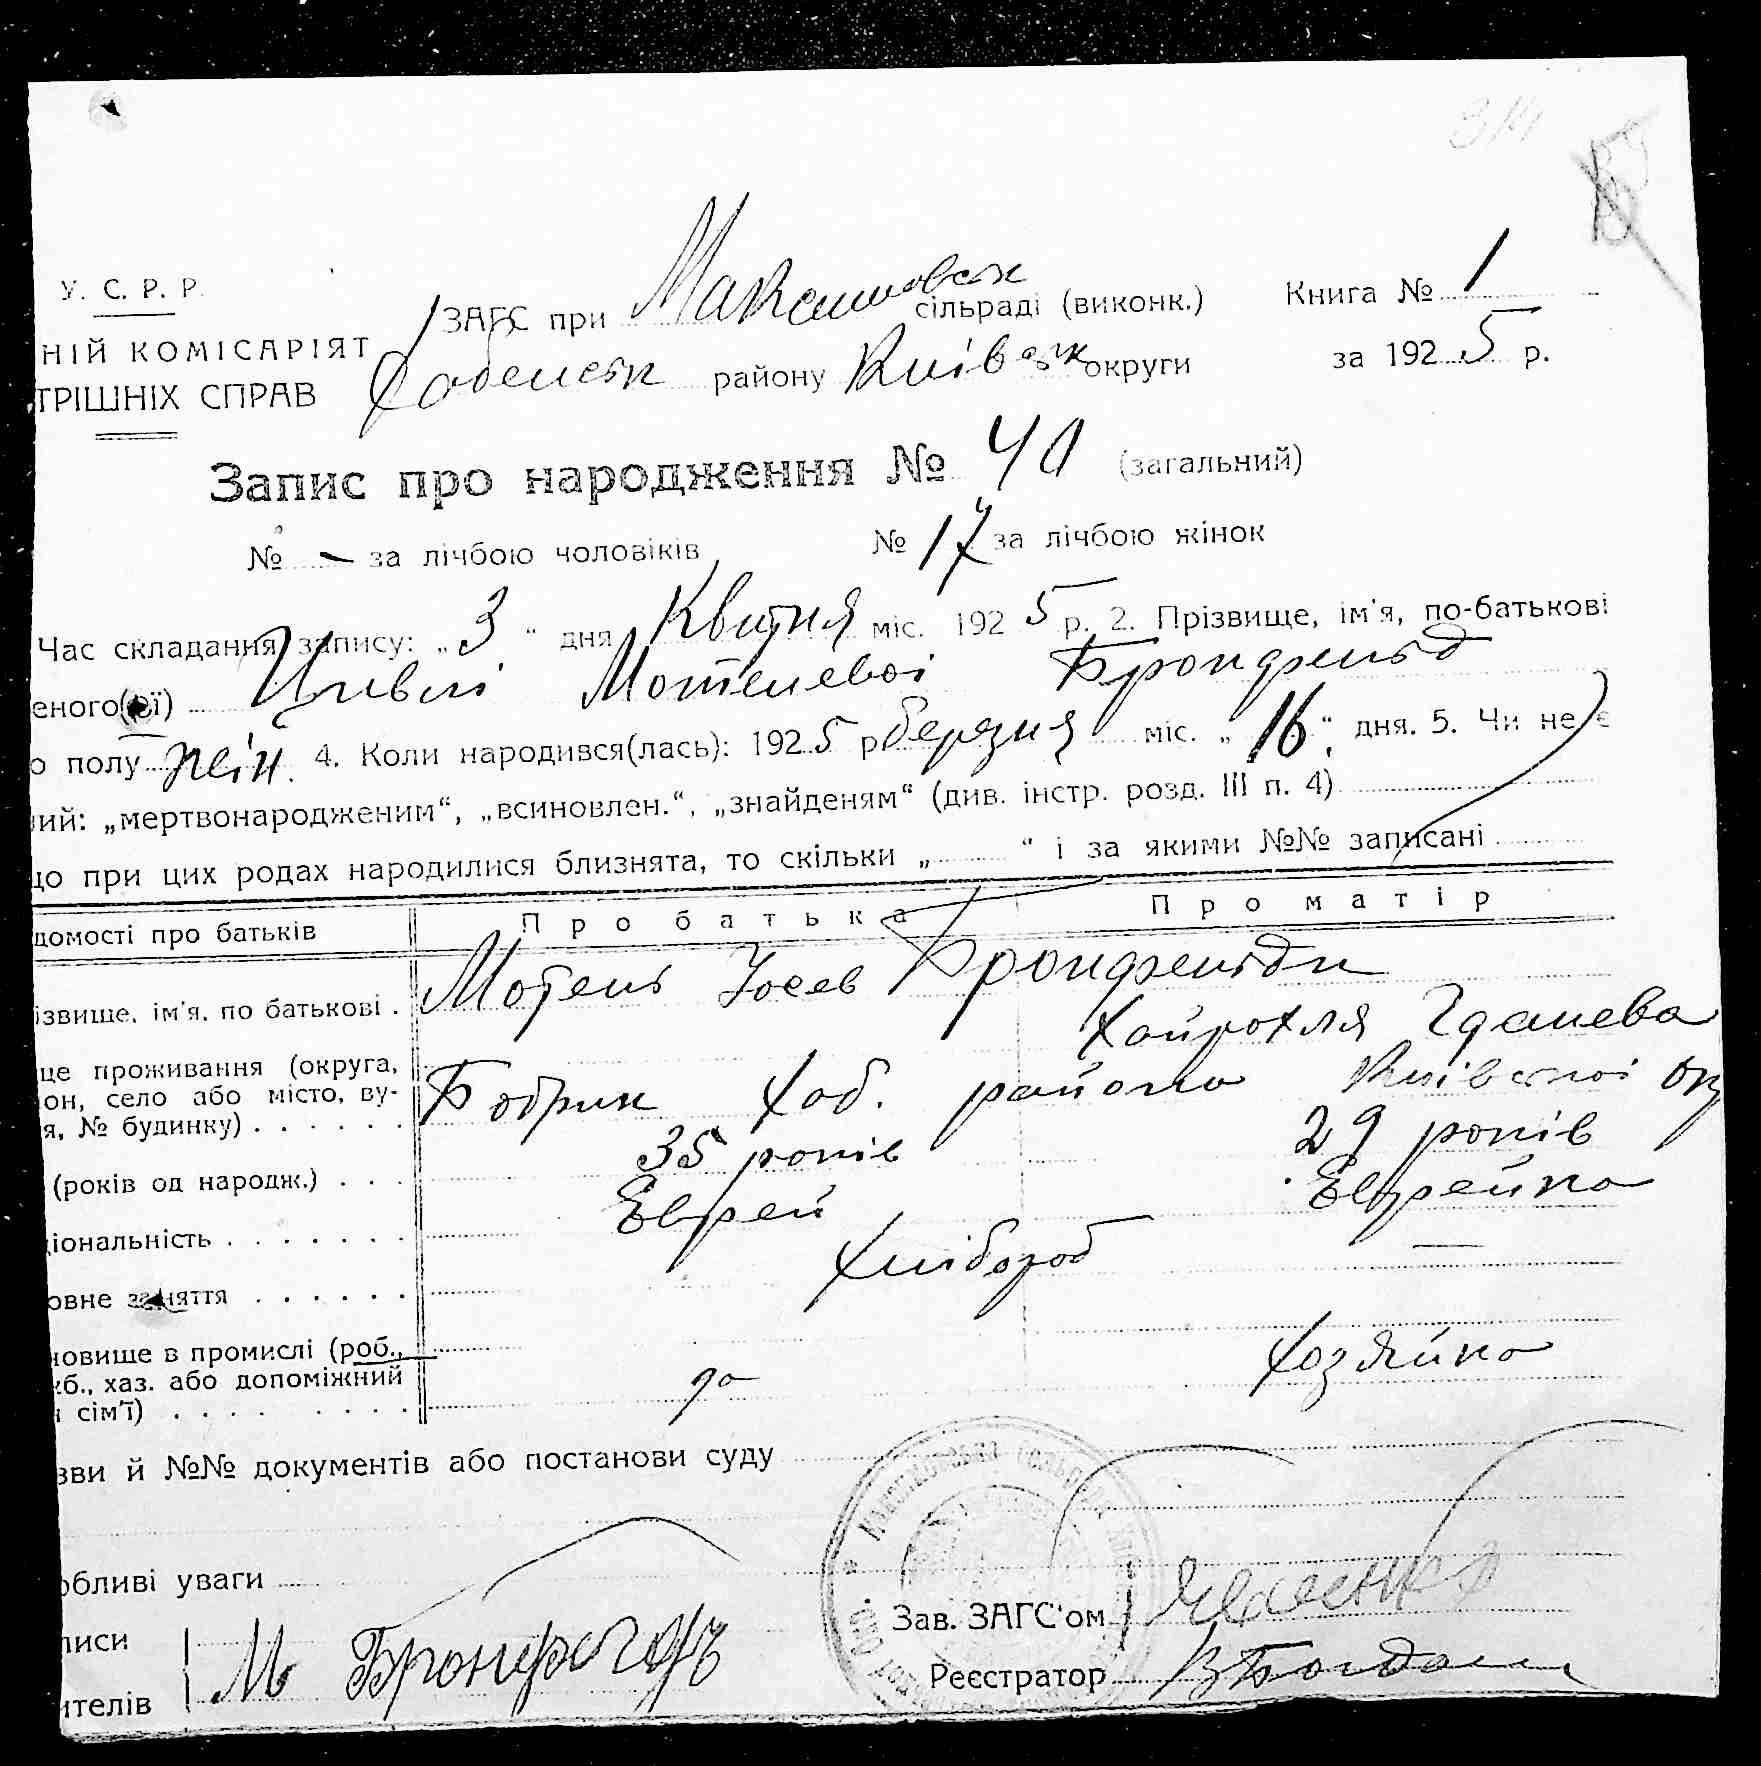 У. С. Р. Р.
НІЙ КОМІСАРІЯТ
ТРІШНІХ СПРАВ
ЗАГС при Максимовськ сільраді (виконк.) Книга № 1
Хабенськ району Київськ округи за 1925 р.
Запис про народження № 40 (загальний)
№ — за лічбою чоловіків № 17 за лічбою жінок
Час складання запису: „3“ дня Квітня міс. 1925 р. 2. Прізвище, ім'я, по-батькові
еного(ої) Цивлі Мотелевої Бронфельд
о полу жін. 4. Коли народився(лась): 1925 р березня міс. „16“ дня. 5. Чи не є
ний: „мертвонародженим“, „всиновлен.“, „знайденям“ (див. інстр. розд. III п. 4)
що при цих родах народилися близнята, то скільки „ “ і за якими №№ записані
домості про батьків Про батька Про матір
ізвище, ім'я, по батькові . Мотель Иосев Бронфельди Хайрохля Гдалева
це проживання (округа,
он, село або місто, ву-
я, № будинку) . . . . . . Бобрик Хаб. району Київської окр
(років од народж.) . . . 35 років 29 років
іональність . . . . . . . Еврей Еврейка
овне заняття . . . . . . Хлібороб —
новище в промислі (роб.,
жб., хаз. або допоміжний
і сім'ї) . . . . . . . . да Хозяйка
зви й №№ документів або постанови суду
обливі уваги
писи
ителів М Бронф
Зав. ЗАГС'ом
Реєстратор